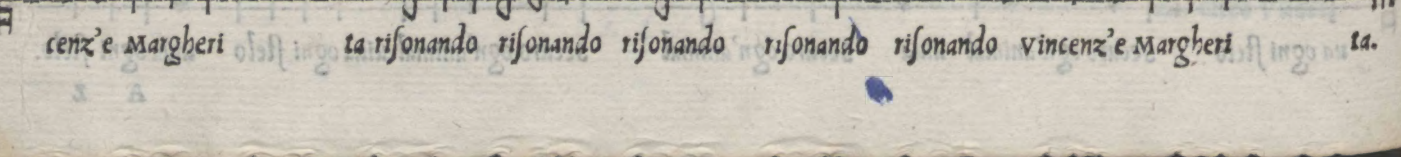 cenz'e Margheri ta riſonando riſonando riſonando riſonando riſonando Vincenz'e Margheri ta.